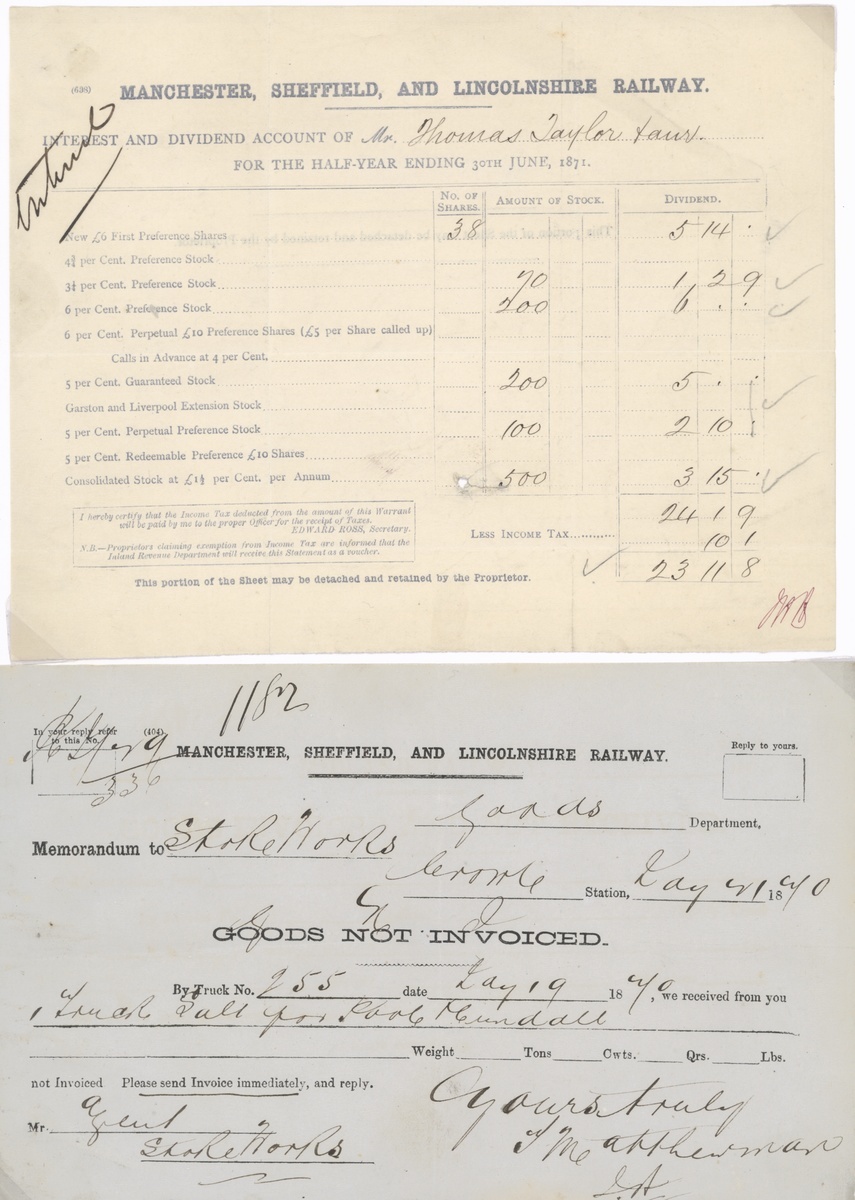 (636) MANCHESTER, SHEFFIELD, AND LINCOLNSHIRE RAILWAY.
INTEREST AND DIVIDEND ACCOUNT OF Mr. Thomas Taylor
FOR THE HALF-YEAR ENDING 30TH JUNE, 1871.
NO. OF SHARES. AMOUNT OF STOCK. DIVIDEND.
New £6 First Preference Shares 38 5 14 .
4¾ per Cent. Preference Stock
3¼ per Cent. Preference Stock 70 1 2 9
6 per Cent. Preference Stock 200 6 . .
6 per Cent. Perpetual £10 Preference Shares (£5 per Share called up)
Calls in Advance at 4 per Cent.
5 per Cent. Guaranteed Stock 200 5 . .
Garston and Liverpool Extension Stock
5 per Cent. Perpetual Preference Stock 100 2 10 .
5 per Cent. Redeemable Preference £10 Shares
Consolidated Stock at £1½ per Cent. per Annum 500 3 15 .
24 1 9
I hereby certify that the Income Tax deducted from the amount of this Warrant
will be paid by me to the proper Officer for the receipt of Taxes.
EDWARD ROSS, Secretary.
LESS INCOME TAX 10 1
N.B.—Proprietors claiming exemption from Income Tax are informed that the
Inland Revenue Department will receive this Statement as a voucher.
23 11 8
This portion of the Sheet may be detached and retained by the Proprietor.
1182
In your reply refer to this No. (404)
336
MANCHESTER, SHEFFIELD, AND LINCOLNSHIRE RAILWAY.
Reply to yours.
Goods Department,
Memorandum to Stoke Works
Crowle Station, May 21 1870
GOODS NOT INVOICED.
By Truck No. 255 date May 19 1870, we received from you
1 Truck Salt for
Weight Tons Cwts. Qrs. Lbs.
not Invoiced Please send Invoice immediately, and reply.
Yours truly
Mr. Agent
Stoke Works
T Matthewman